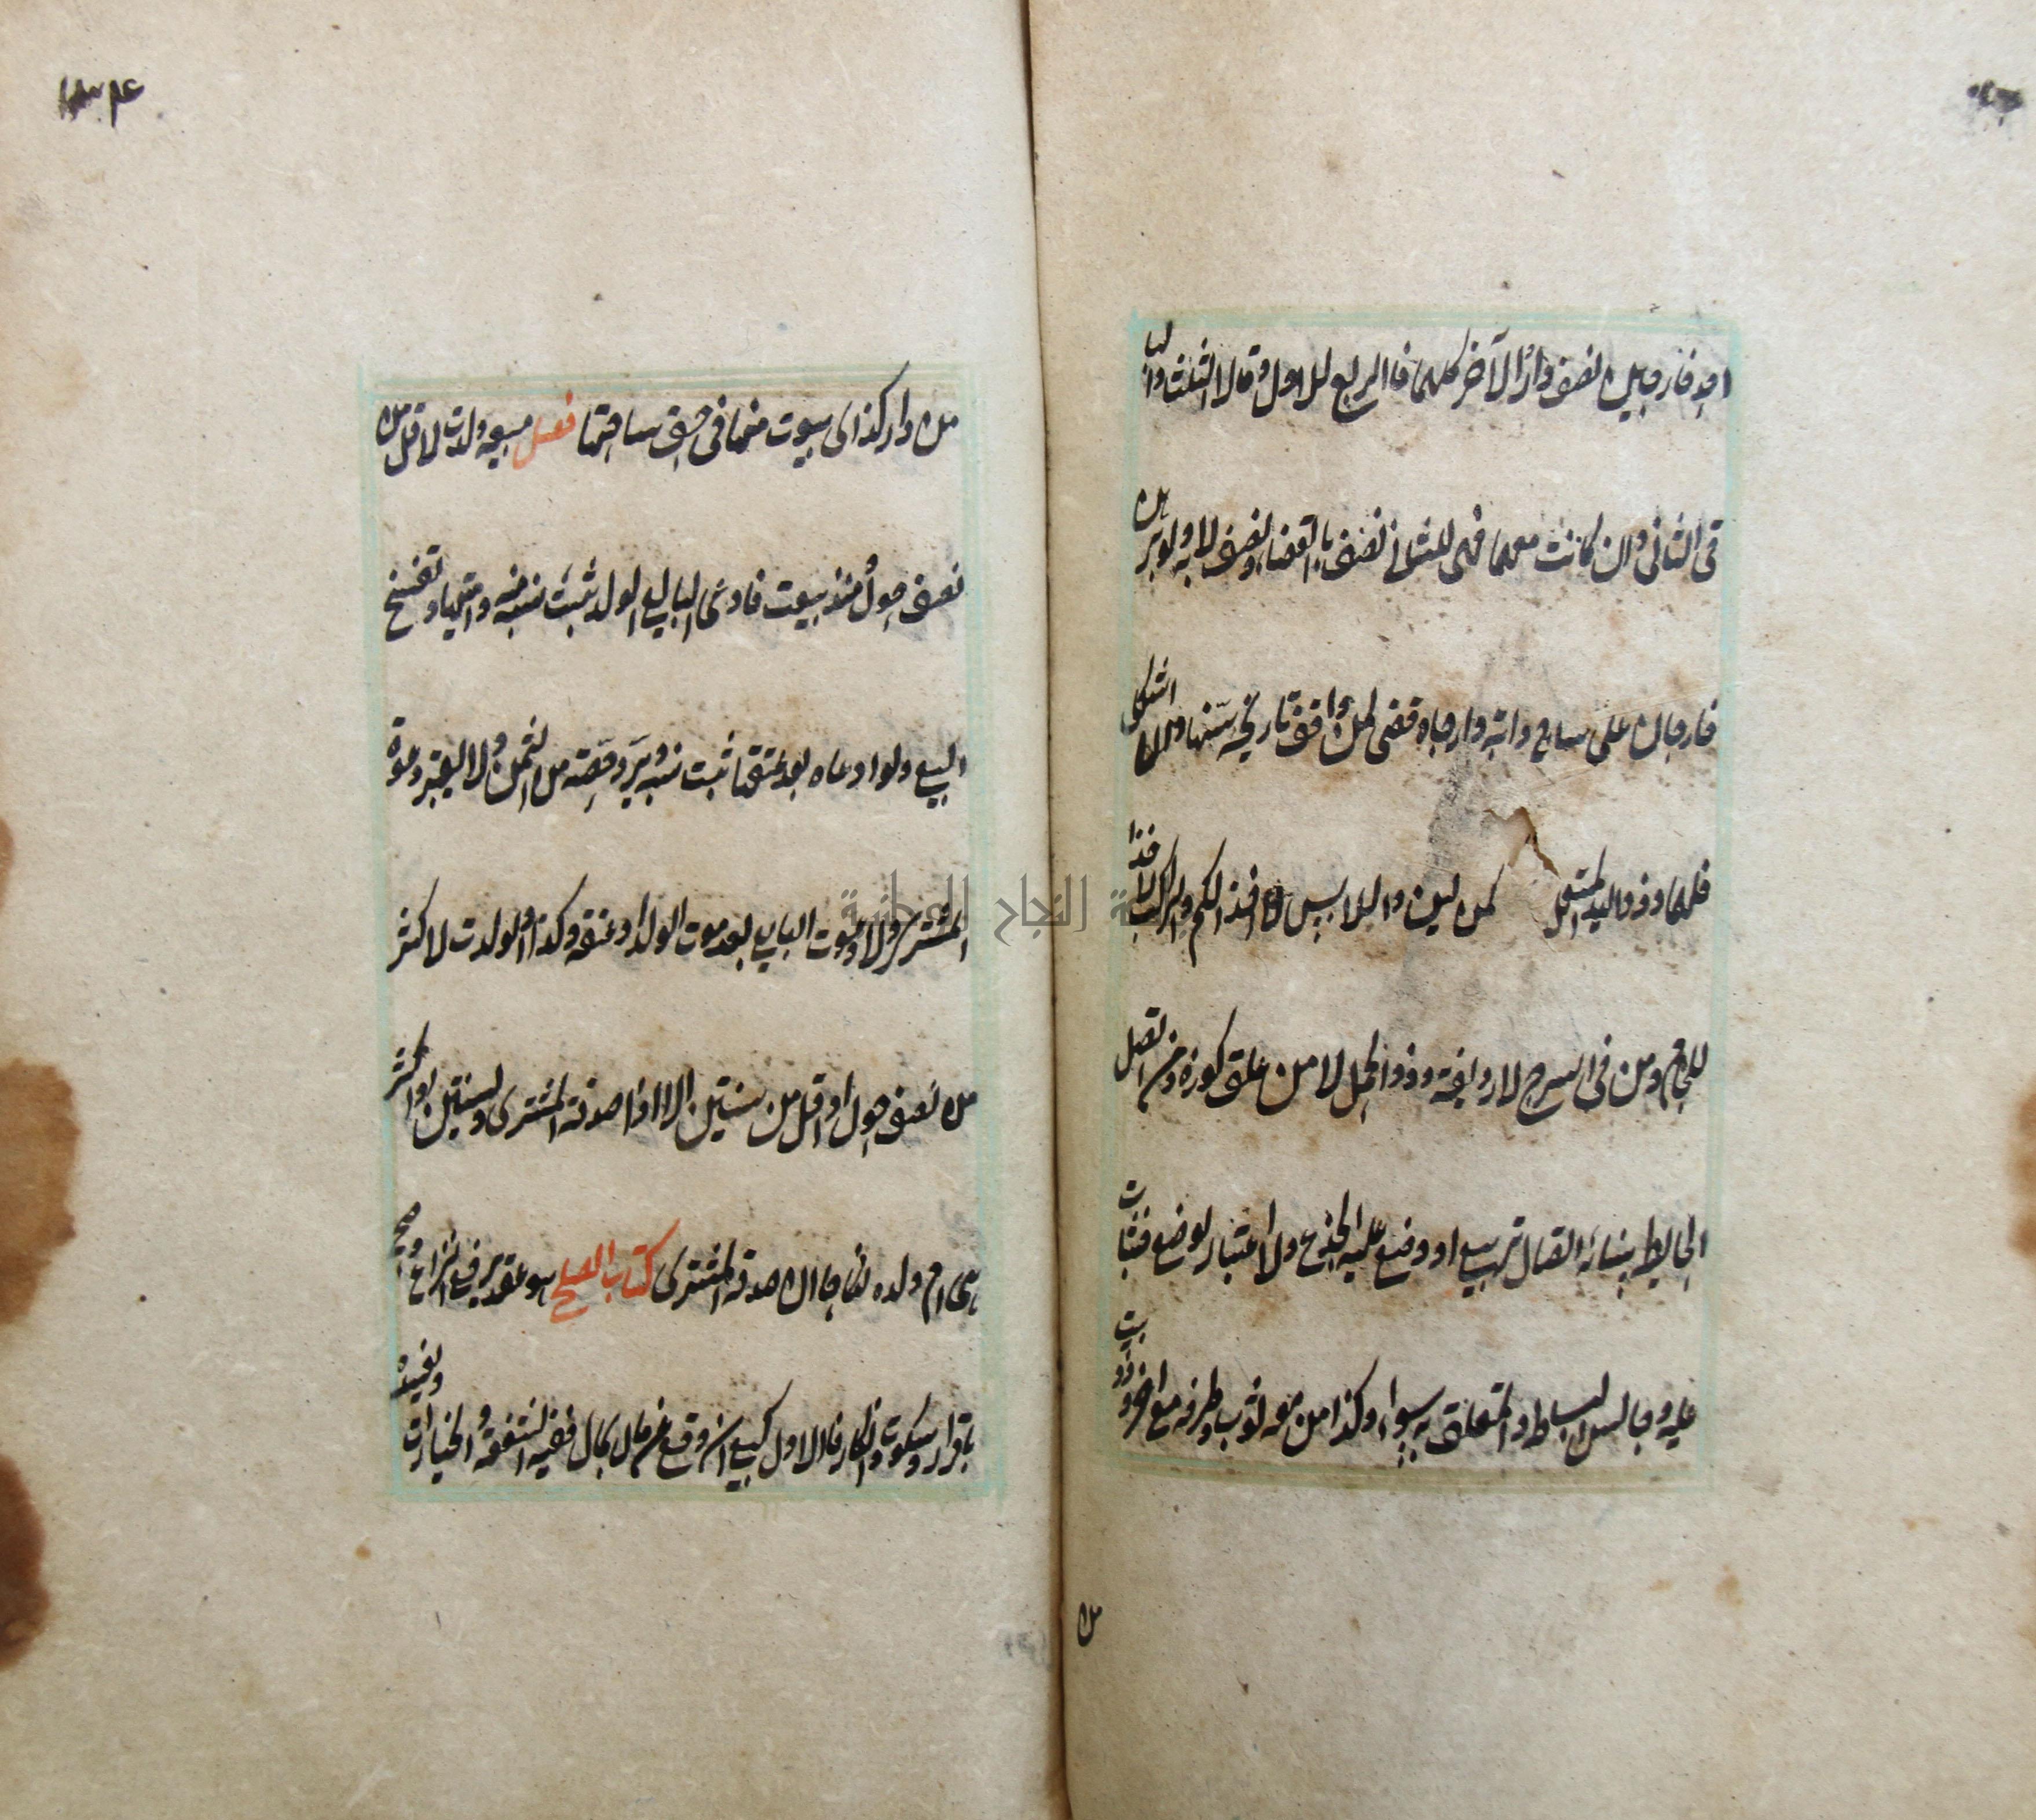 احد خارجين نصف دار الآخر كلها فالربع للاول وقالا الثلث والبا
قى للثانى وان كانت معهما فهى للثانى نصف بالقضاء ونصف لا به ولو برهن
خارجان على نتاج دابة وارخاه قضى لمن وافق تاريخه سنها وان اشكل
فلهما وذو اليد المستعمل كمن لبن واللابس لا آخذ الكم والراكب لا آخذ
اللجام ومن فى السرج لا رديفه وذو الحمل لا من علق كوزه ومن اتصل
الحايط ببنائه اتصال تربيع او وضع عليه الجذوع ولا اعتبار لوضع خشبات
عليه وجالس البساط والمتعلق به سواء وكذا من معه ثوب وطرفه مع اخر وذو بيت
من
من دار كذى بيوت منها فى حق ساحتها فصل مبيعة ولدت لاقل من
نصف حول منذ بيعت فادعى البايع الولد ثبت نسبه منه واميتها ويفسخ
البيع ولو ادعاه بعد عتقها ثبت نسبه ويرد حصته من الثمن ولا يعتبر دعوة
المشترى ولا دعوت البايع بعد موت الولد او عتقه وكذا لو ولدت لاكثر
من نصف حول او اقل من سنتين الا اذا صدقه المشترى ولسنتين او اكثر
هى ام ولده نكاحا ان صدقه المشترى كتاب الصلح هو عقد يرفع النزاع وصح
باقرار وسكوت وانكار فالاول كبيع ان وقع عن مال بمال ففيه الشفعة والخيارات ويفسده